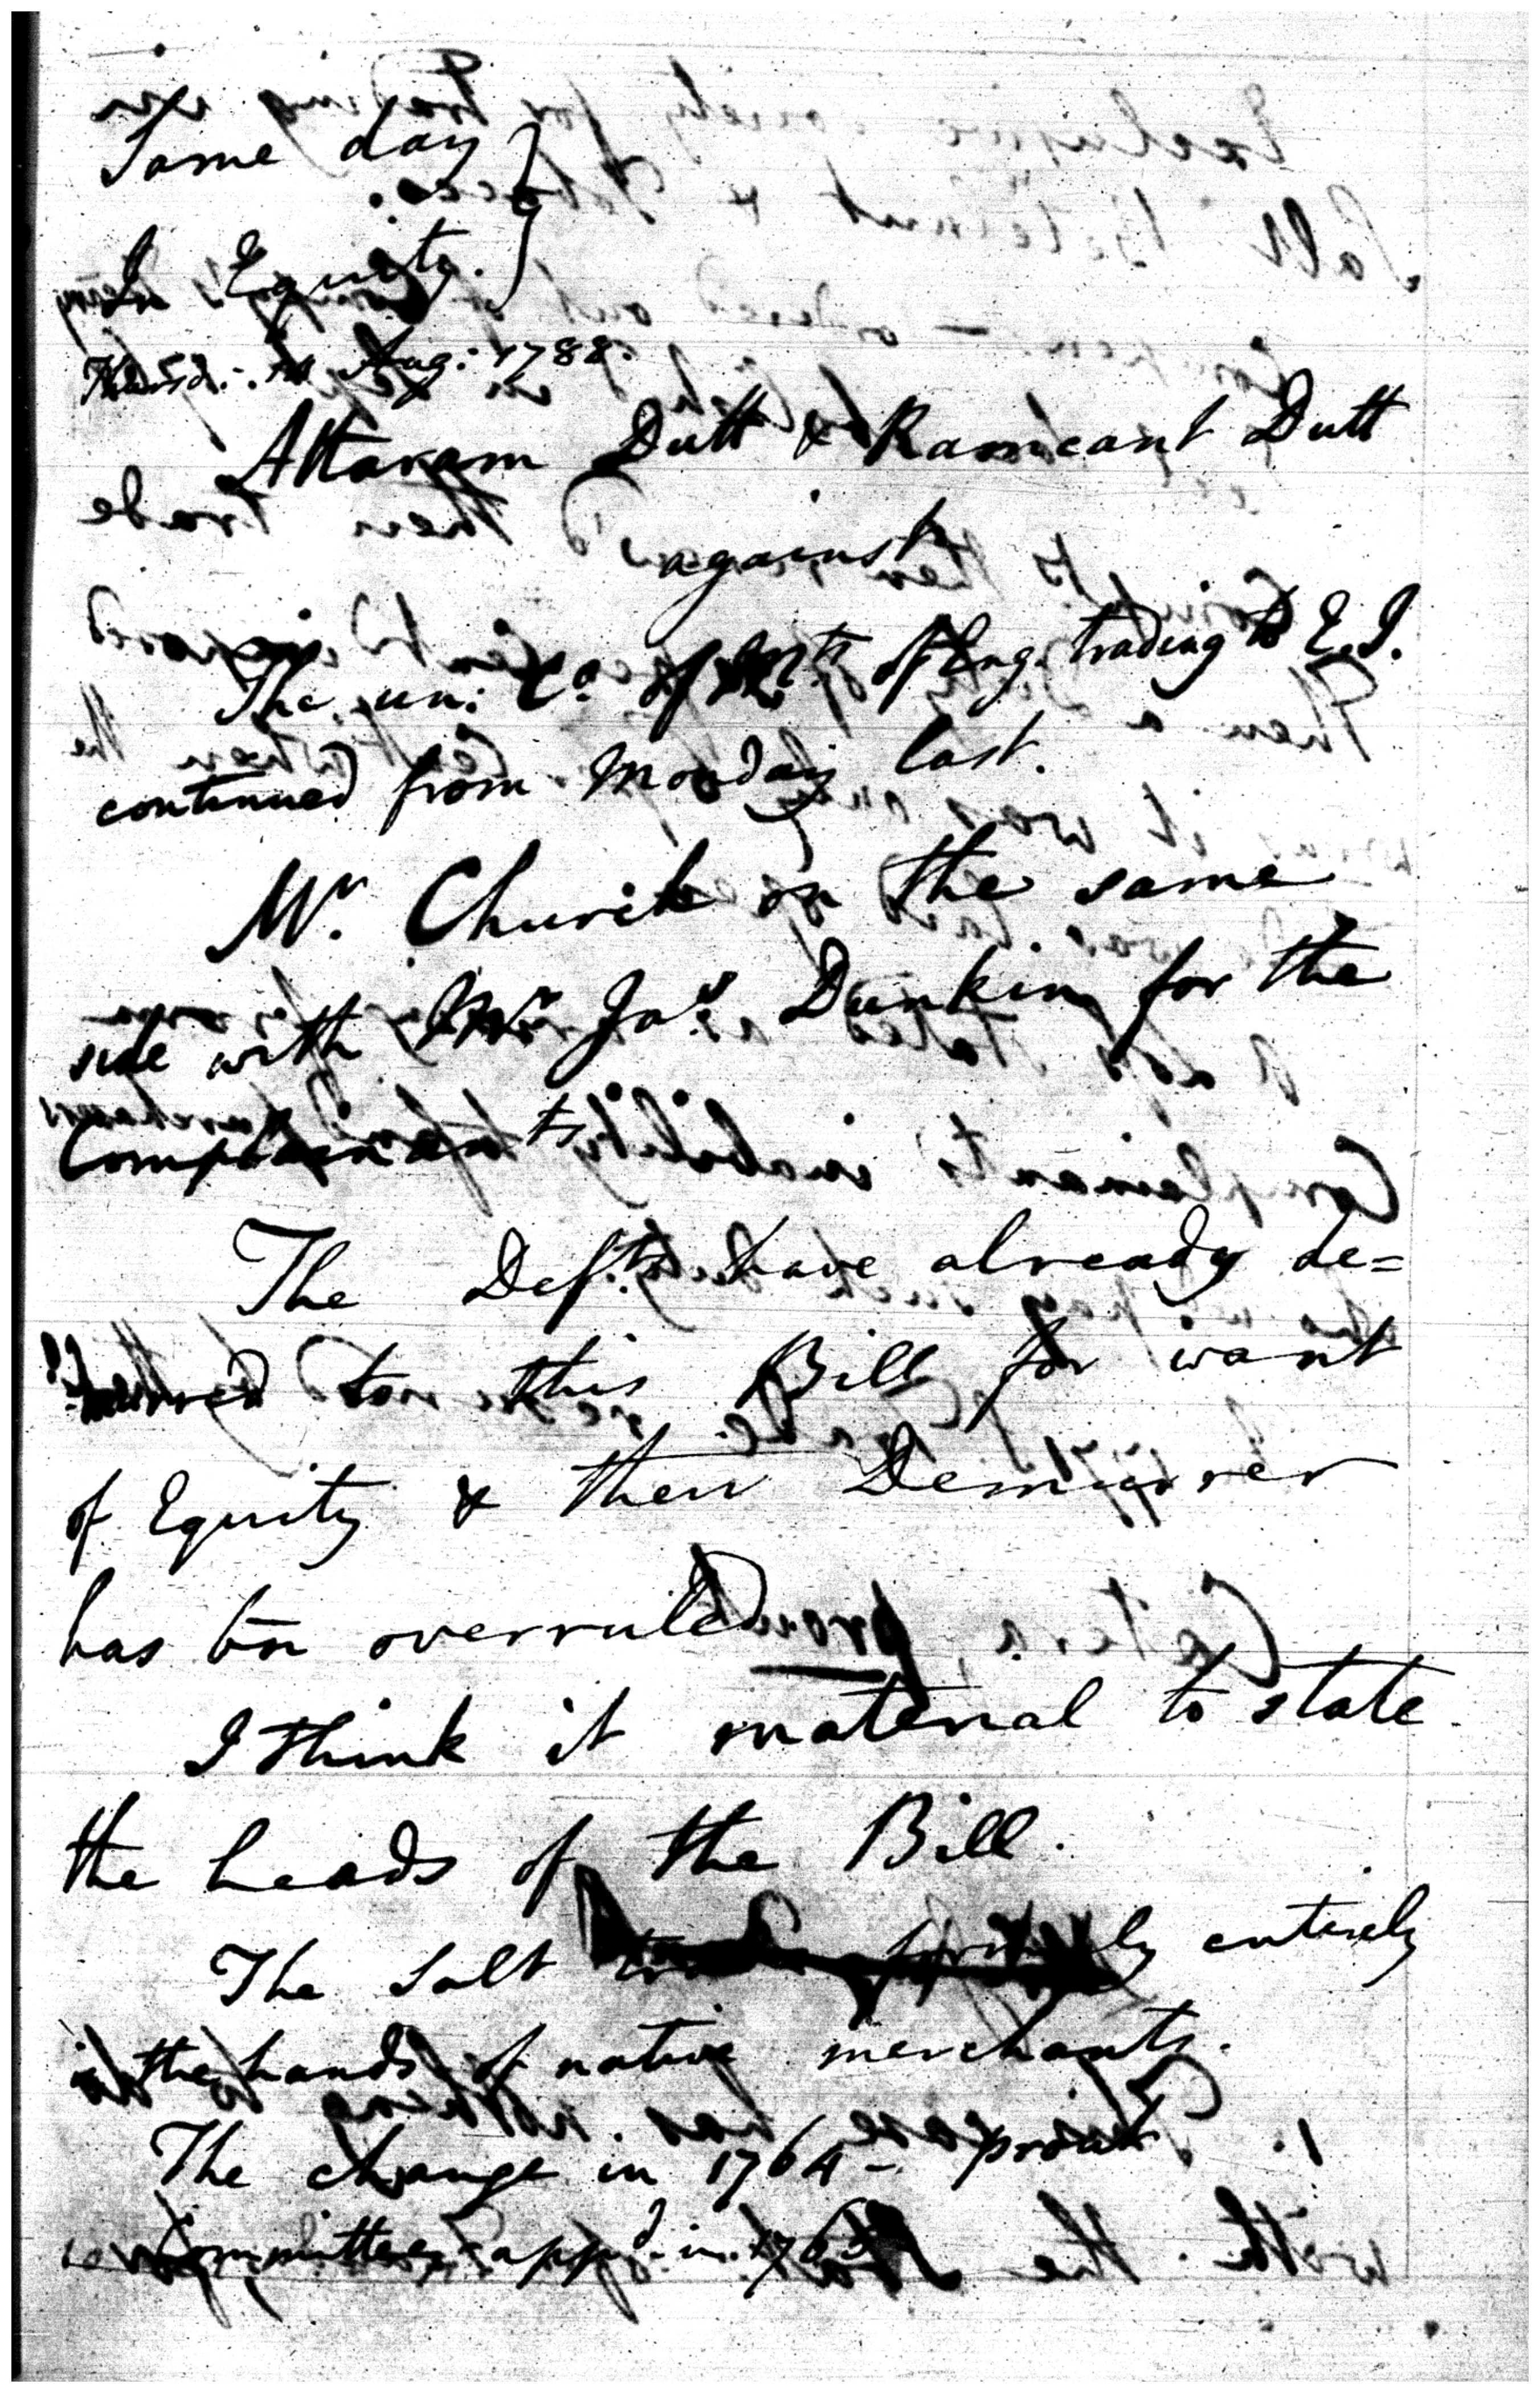 Same day }
In Equity. }
Aug: 1788.
Attaram Dutt & Ramcant Dutt
against
The un: Co. of Mts. of Eng. trading to E.I.
continued from Monday last.
Mr. Church on the same
side with Mr. Jas. Dunkin for the
Complainants
The Defts. have already de=
murred to this Bill for want
of Equity & their Demurrer
has bn overruled
I think it material to state
the heads of the Bill.
The Salt formerly entirely
in the hands of native merchants.
The change in 1764 - prout
Committee appd. in